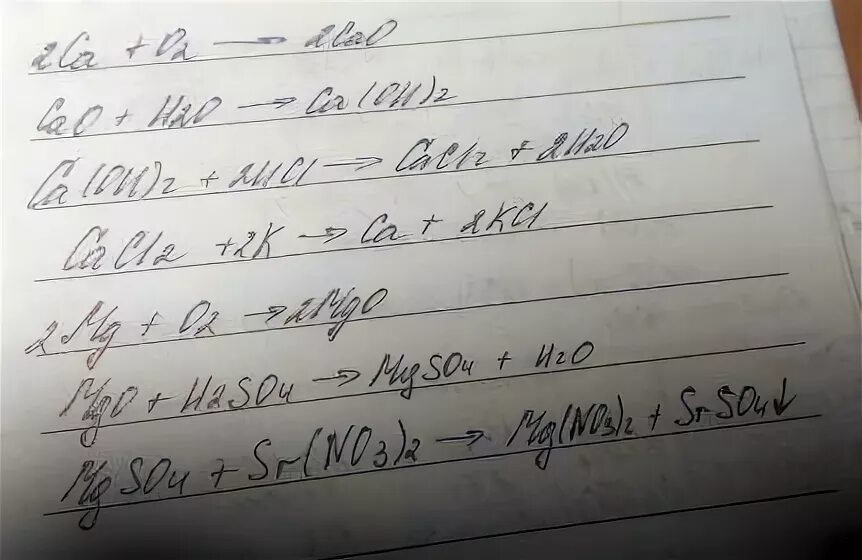 2Ca + O2 → 2CaO
CaO + H2O → Ca(OH)2
Ca(OH)2 + 2HCl → CaCl2 + 2H2O
CaCl2 + 2K → Ca + 2KCl
2Mg + O2 → 2MgO
MgO + H2SO4 → MgSO4 + H2O
MgSO4 + Sr(NO3)2 → Mg(NO3)2 + SrSO4↓